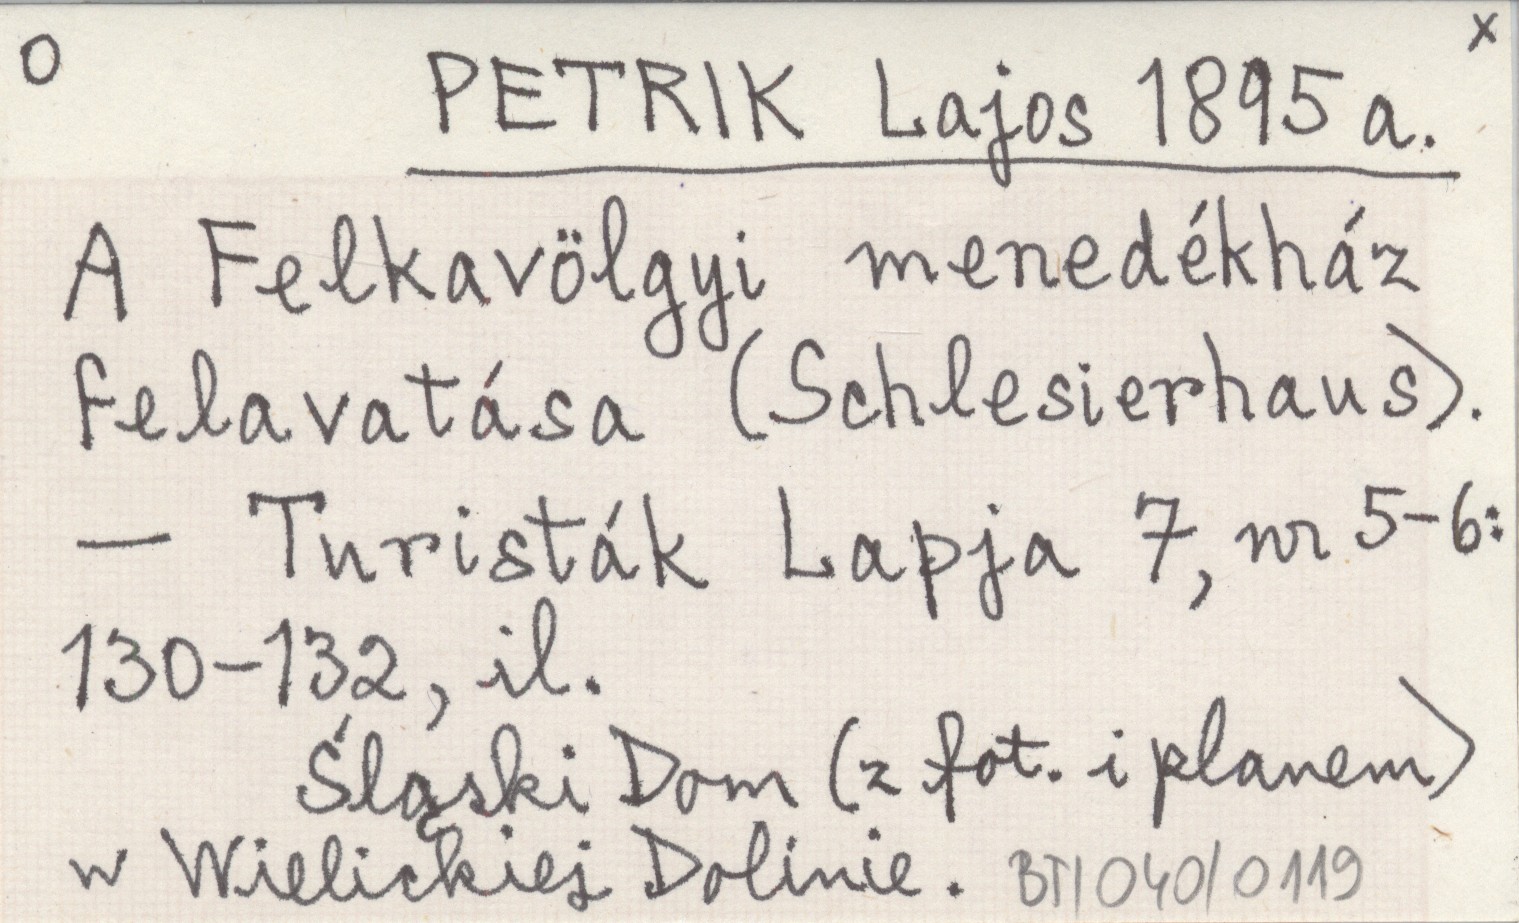 O
x
PETRIK Lajos 1895 a.
A Felkavölgyi menedékház
felavatása (Schlesierhaus).
— Turisták Lapja 7, nr 5-6:
130-132, il.
Śląski Dom (z fot. i planem)
w Wielickiej Dolinie. BT/040/0119